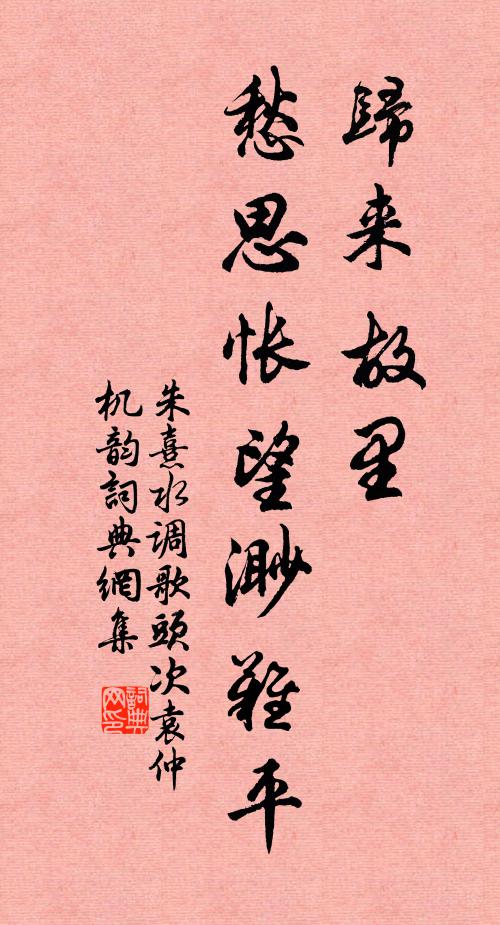 歸来故里
愁思悵望渺難平
朱熹水调歌頭次袁仲
机韵詞典網集
詞典
网印